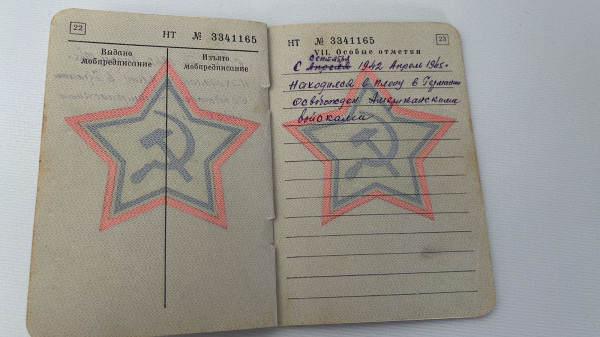 22
НТ № 3341165
Выдано мобпредписание
Изъято мобпредписание
23
НТ № 3341165
VII. Особые отметки
сентября
С Апреля 1942 Апрель 1945г
Находился в плену в Германии
освобожден Американскими
войсками